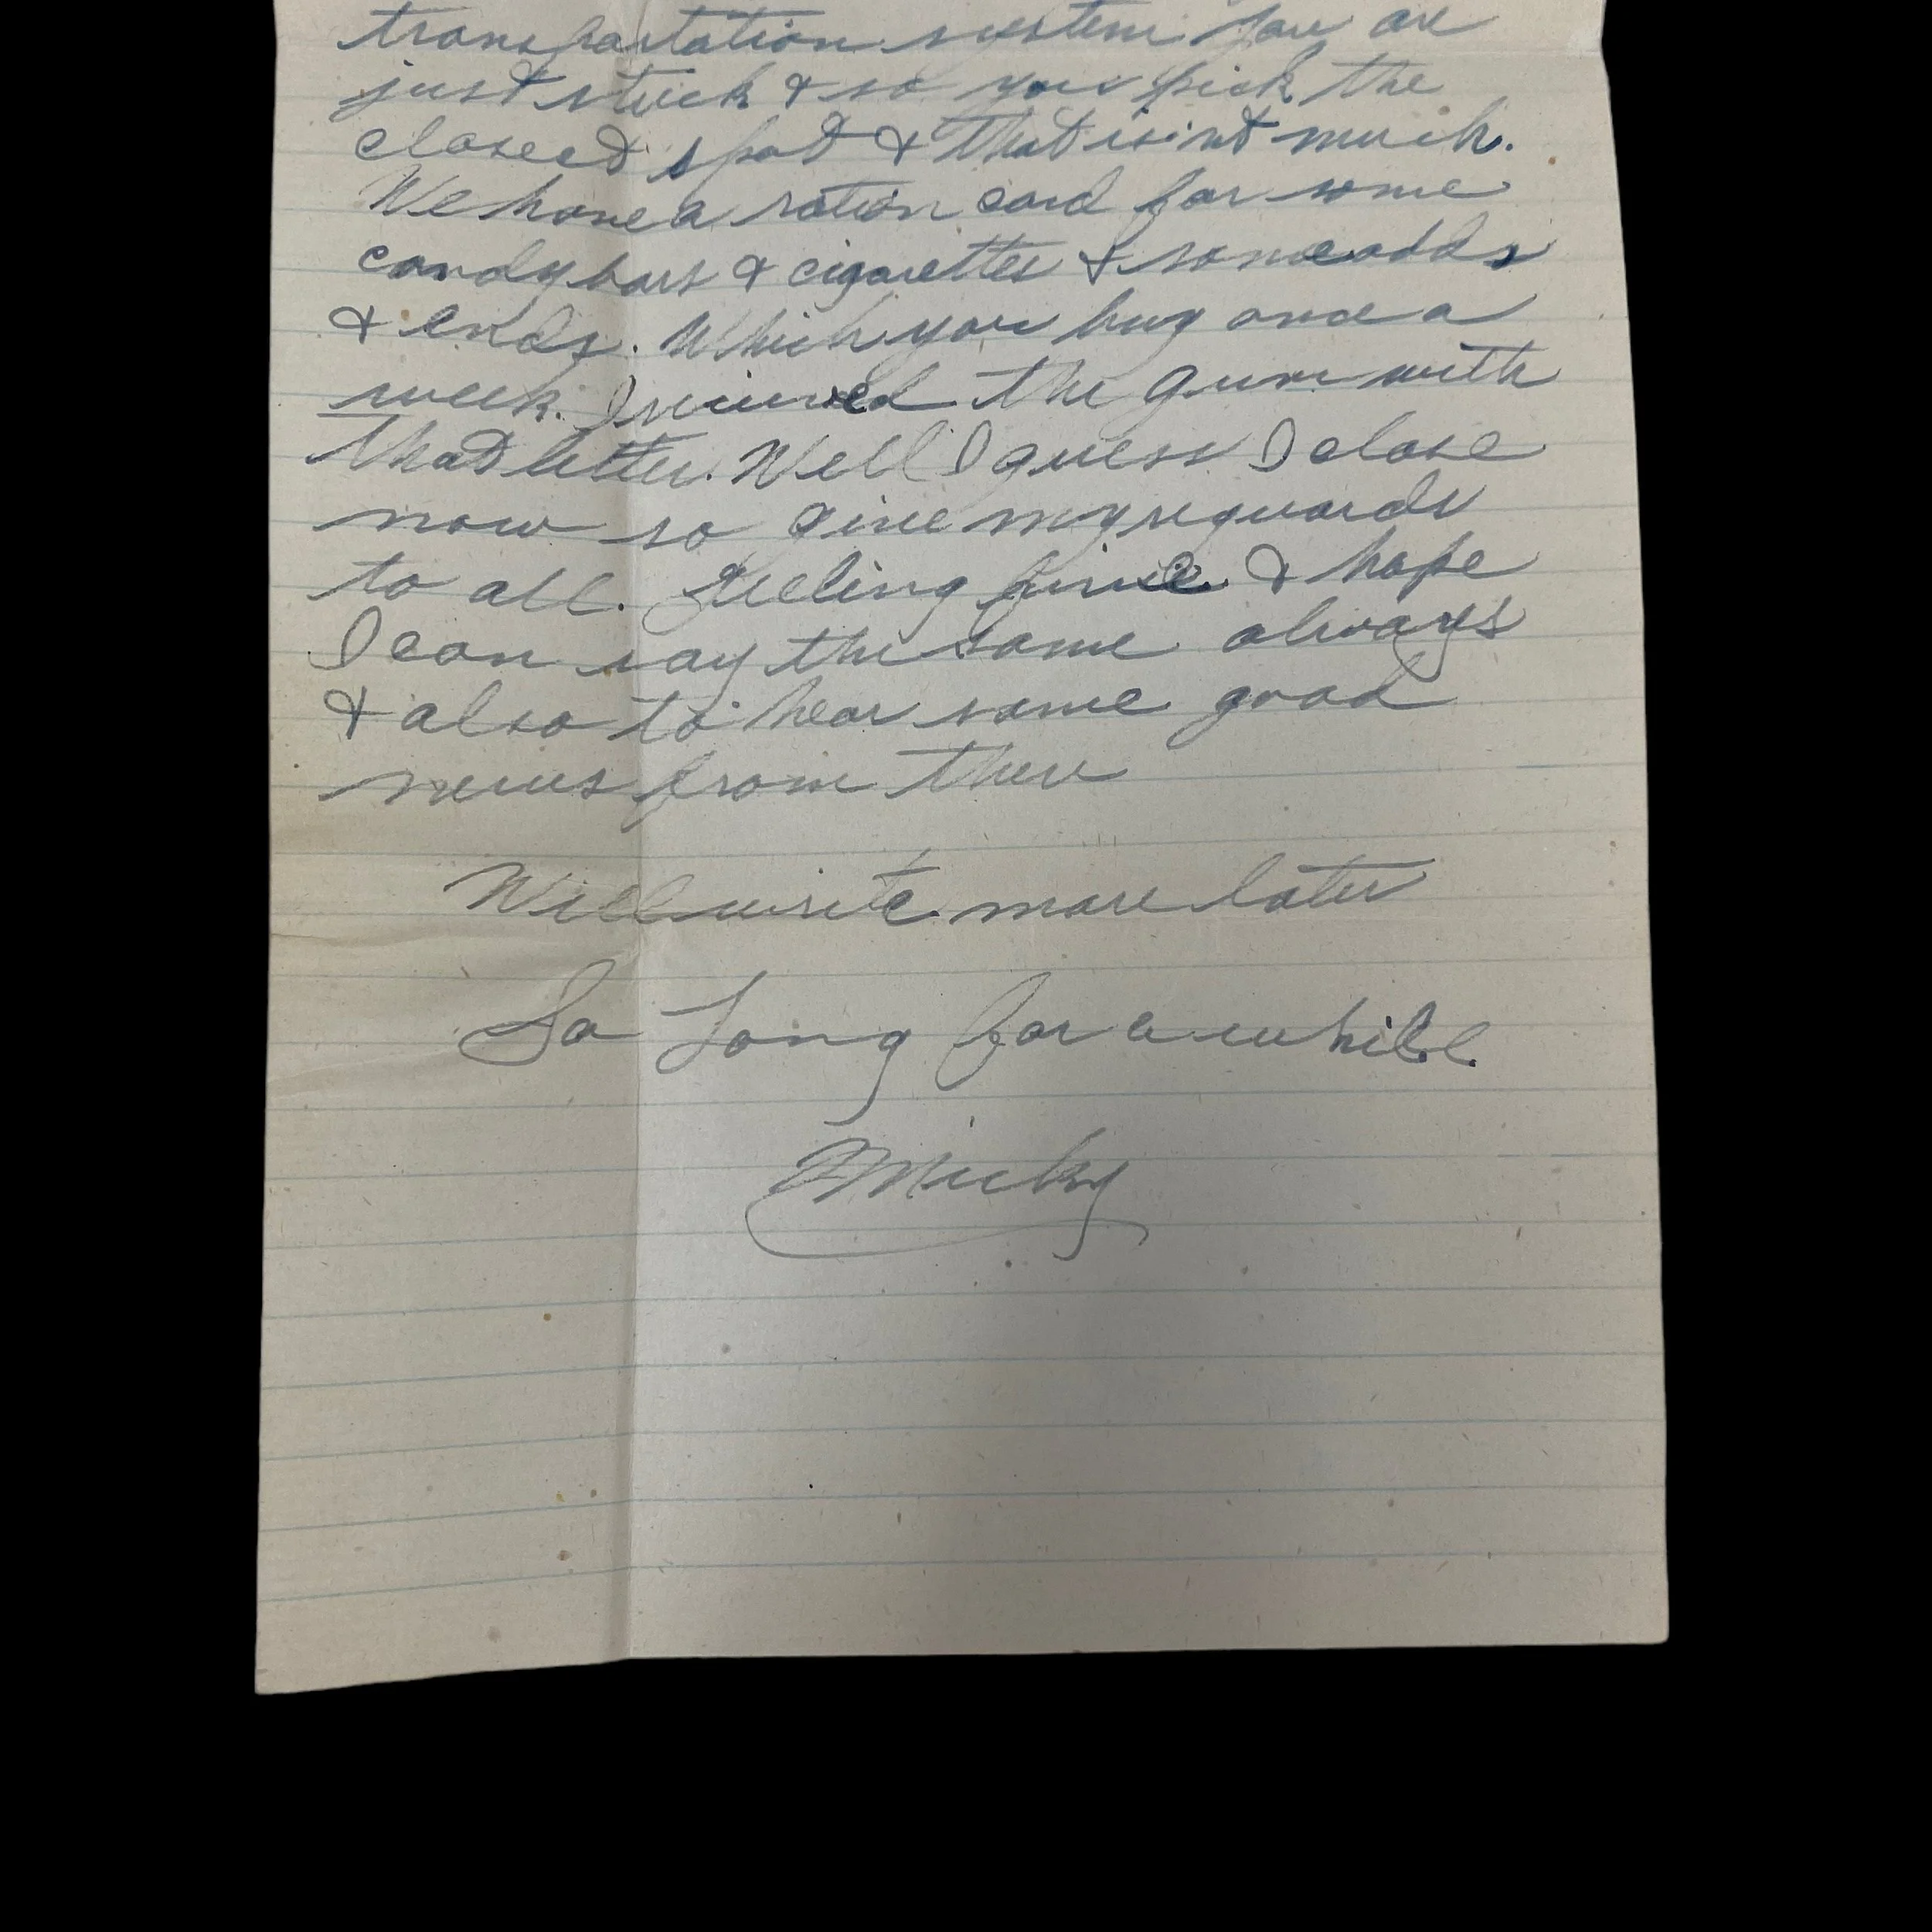 transportation system you are
just stuck & so you pick the
closest spot & that is'int much.
We have a ration card for some
candy bars & cigarettes & some odds
& ends. Which you buy once a
week. I recieved the gum with
that letter. Well I guess I close
now so give my reguards
to all. Feeling fine & hope
I can say the same always
& also to hear some good
news from there
Will write more later
So Long for a while
Micky